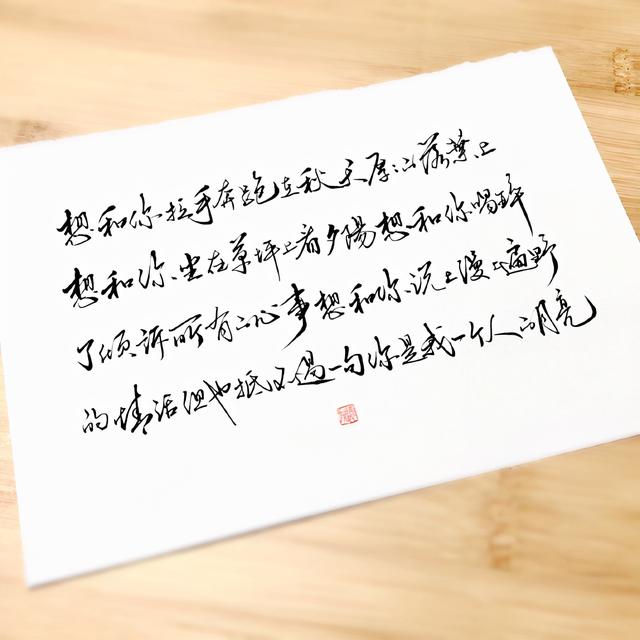 想和你拉手奔跑在秋天厚厚的落葉上
想和你坐在草坪上看夕陽想和你喝醉
了傾訴所有的心事想和你说上漫山遍野
的情话但也抵不過一句你是我一个人的月亮